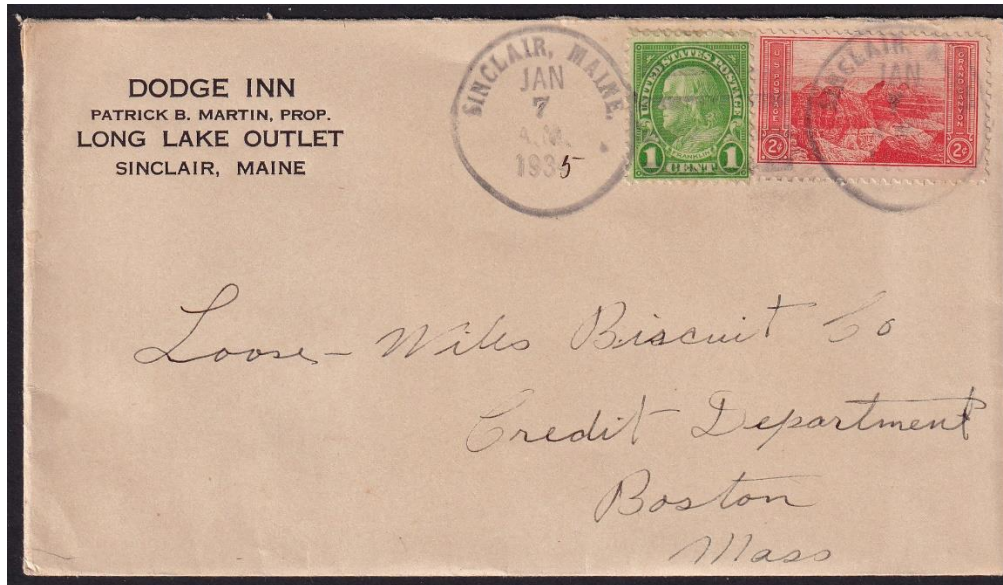 DODGE INN
PATRICK B. MARTIN, PROP.
LONG LAKE OUTLET
SINCLAIR, MAINE
SINCLAIR, MAINE.
JAN
7
A.M.
1935
UNITED STATES POSTAGE
FRANKLIN
1 CENT 1
U.S. POSTAGE
GRAND CANYON
2¢ 2¢
SINCLAIR
JAN
Loose-Wiles Biscuit Co
Credit Department
Boston
Mass